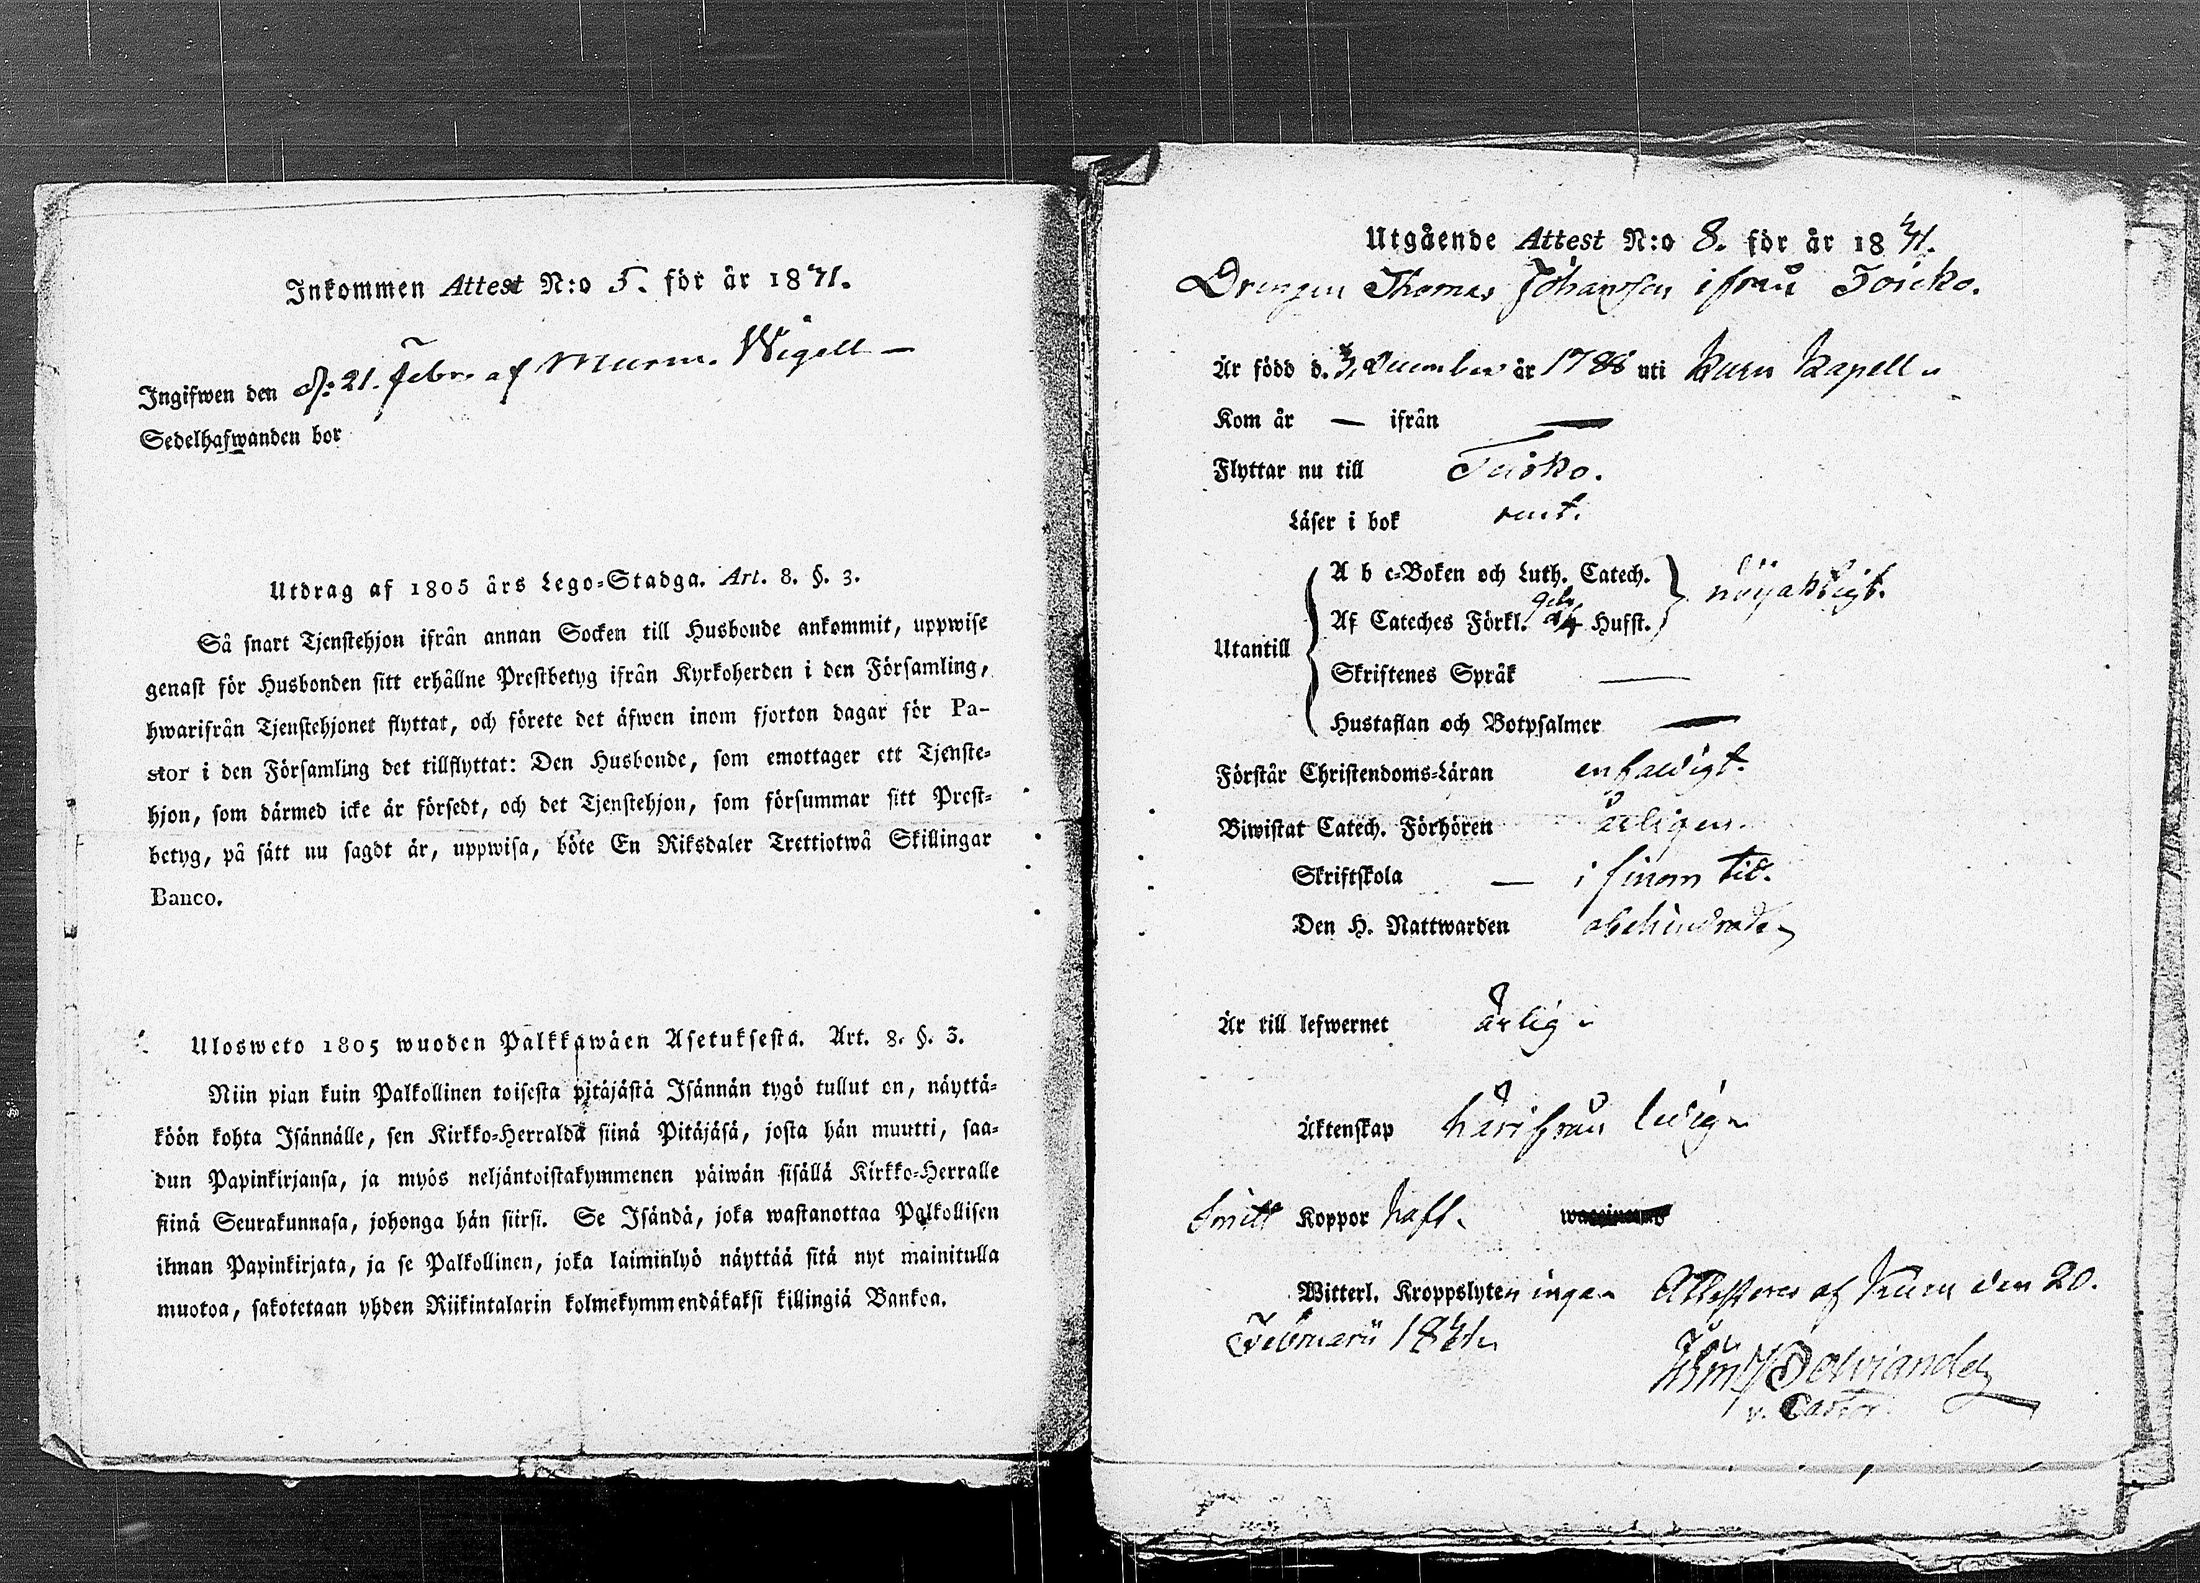 Inkommen Attest N:o 5. för år 1841.
Ingifwen den d: 21. Febr. af Murm. Wigell —
Sedelhafwanden bor
Utdrag af 1805 års Lego-Stadga. Art. 8. §. 3.
Så snart Tjenstehjon ifrån annan Socken till Husbonde ankommit, uppwise
genast för Husbonden sitt erhållne Prestbetyg ifrån Kyrkoherden i den Församling,
hwarifrån Tjenstehjonet flyttat, och förete det äfwen inom fjorton dagar för Pa-
stor i den Församling det tillflyttat: Den Husbonde, som emottager ett Tjenste-
hjon, som därmed icke är försedt, och det Tjenstehjon, som försummar sitt Prest-
betyg, på sätt nu sagdt är, uppwisa, böte En Riksdaler Trettiotwå Skillingar
Banco.
Ulosweto 1805 wuoden Palkkawäen Asetuksesta. Art. 8. §. 3.
Niin pian kuin Palkollinen toisesta pitäjästä Isännän tygö tullut on, näyttä-
köön kohta Isännälle, sen Kirkko-Herralda siinä Pitäjäsä, josta hän muutti, saa-
dun Papinkirjansa, ja myös neljäntoistakymmenen päiwän sisällä Kirkko-Herralle
siinä Seurakunnasa, johonga hän siirsi. Se Isändä, joka wastanottaa Palkollisen
ilman Papinkirjata, ja se Palkollinen, joka laiminlyö näyttää sitä nyt mainitulla
muotoa, sakotetaan yhden Riikintalarin kolmekymmendäkaksi killingiä Bankoa.
Utgående Attest N:o 8. för år 1841.
Drengen Thomas Johansson ifrån Toicko.
Är född d. December år 1788 uti Kuru Kapell
Kom år — ifrån —
Flyttar nu till Teisko.
Läser i bok rent.
Utantill
A b c-Boken och Luth. Catech.
Af Cateches Förkl. Hufst. nöjaktigt.
Skriftenes Språk —
Hustaflan och Botpsalmer —
Förstår Christendoms-Läran enfaldigt.
Biwistat Catech. Förhören årligen.
Skriftskola — i sinom tid.
Den H. Nattwarden obehindrad
Är till lefwernet ärlig
Äktenskap härifrån ledig
Smitt Koppor haft.
Witterl. Kroppslyten inga Attesteras af Kuru den 20.
Februarii 1841.
v. Pastor.